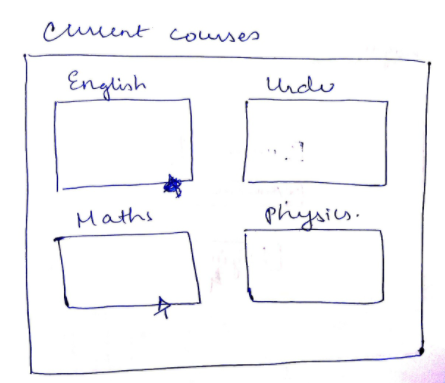 Current courses
English Urdu
Maths Physics.